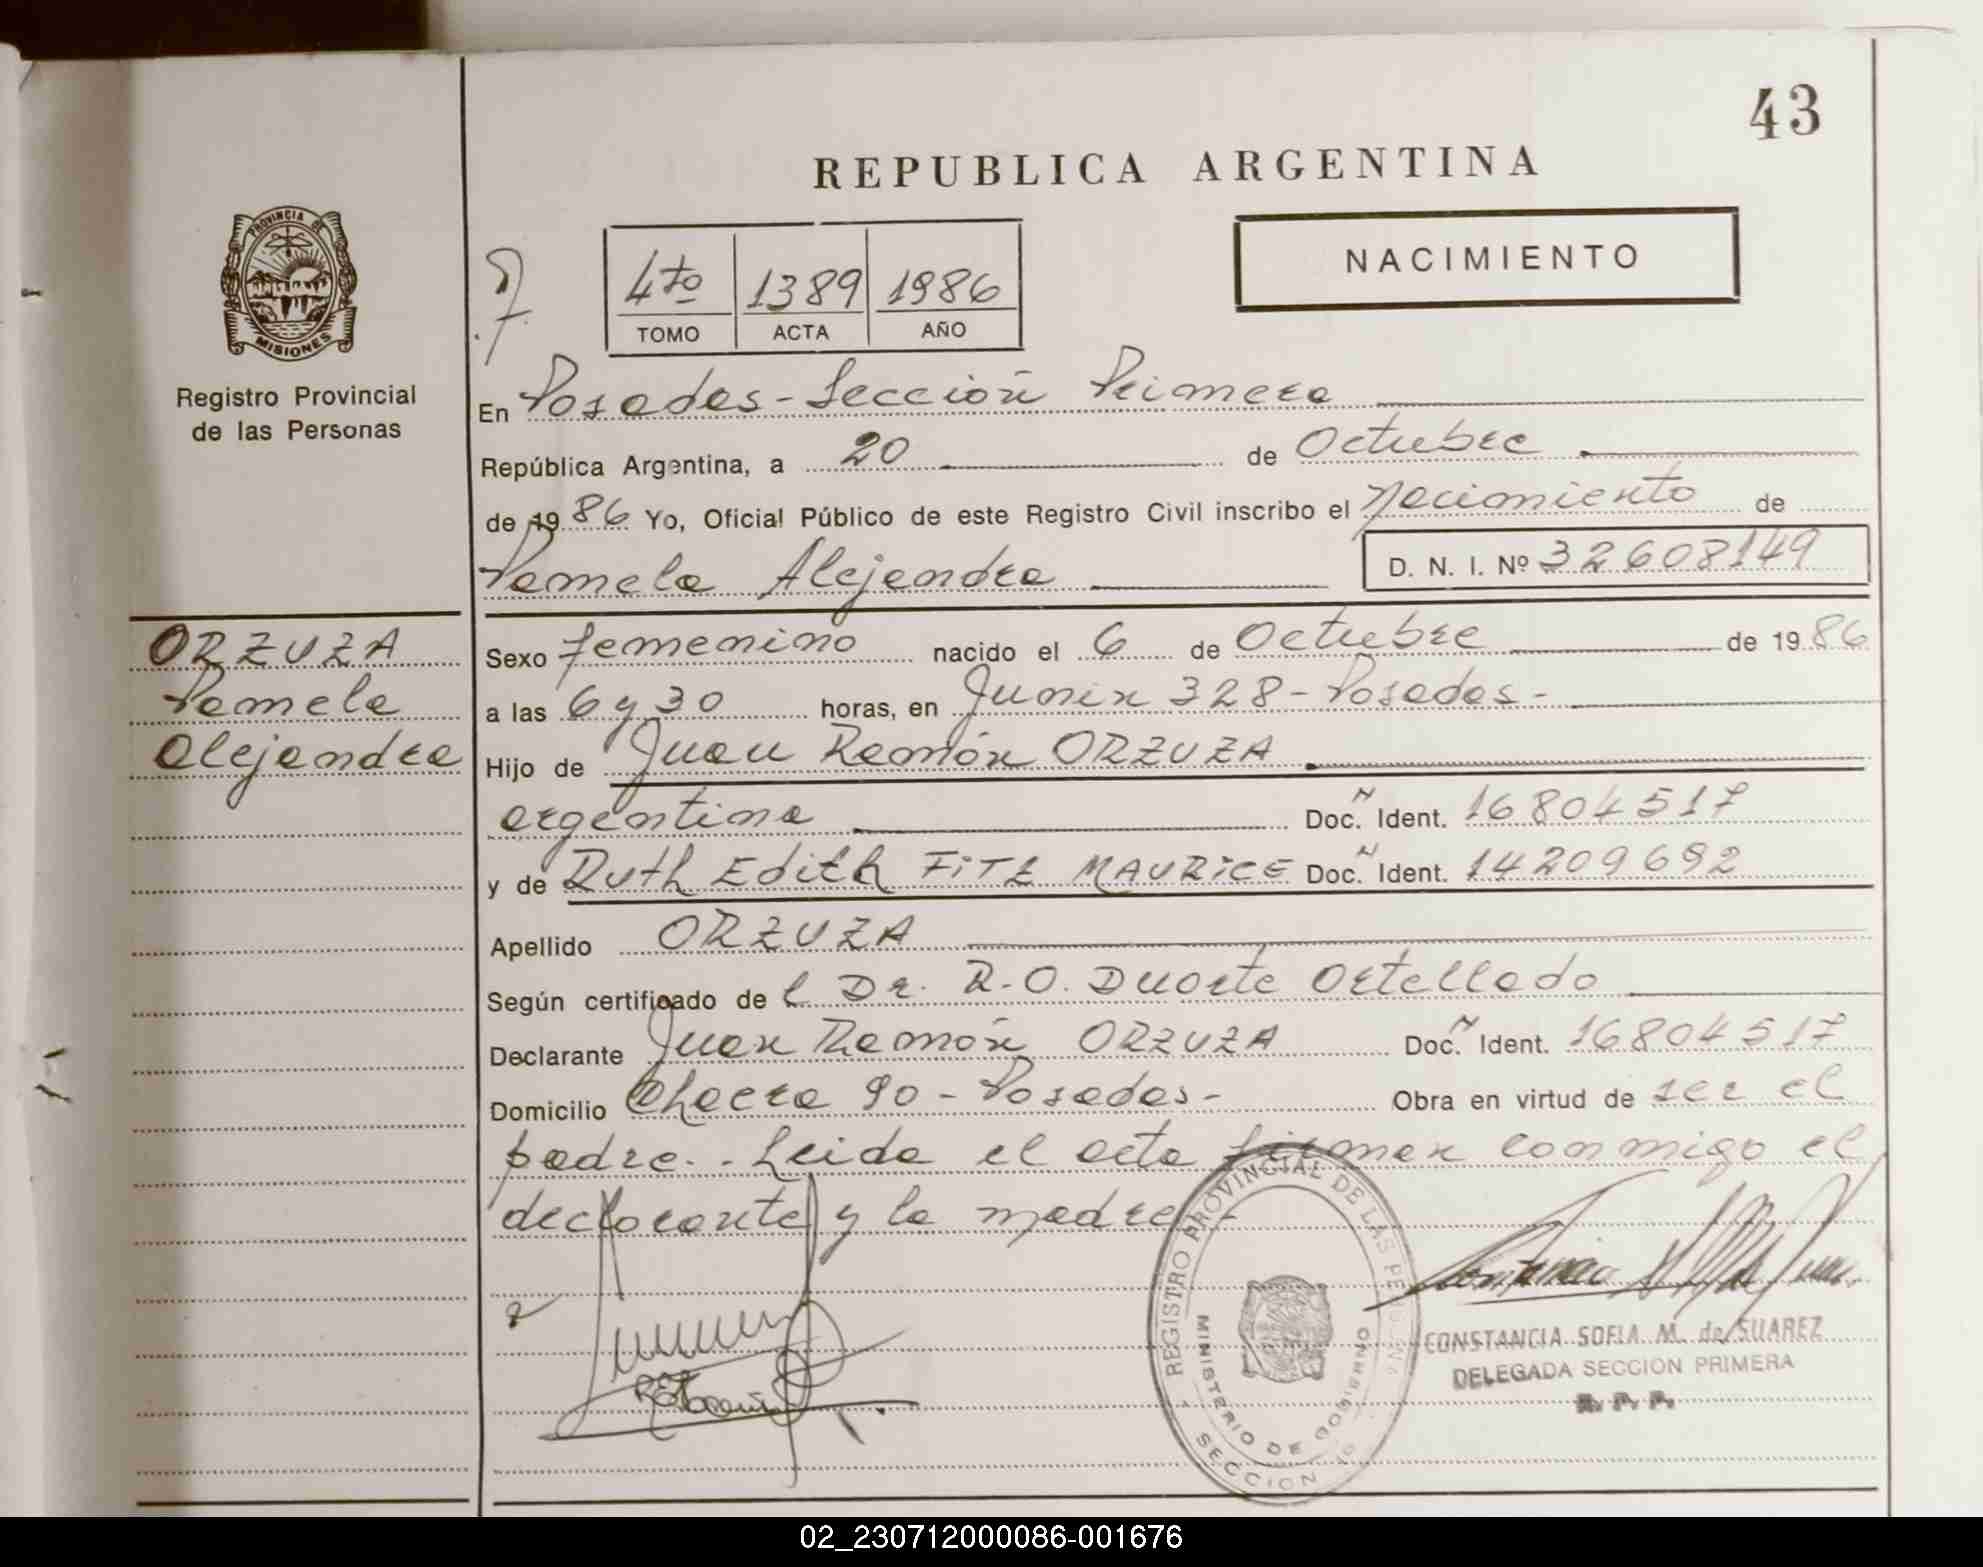 43
REPUBLICA ARGENTINA
PROVINCIA DE
MISIONES
Registro Provincial
de las Personas
4to 1389 1986
TOMO ACTA AÑO
NACIMIENTO
En Posadas - Sección Primera
República Argentina, a 20 de Octubre
de 1986 Yo, Oficial Público de este Registro Civil inscribo el Nacimiento de
Pamela Alejandra D. N. I. Nº 32608149
ORZUZA
Pamela
Alejandra
Sexo femenino nacido el 6 de Octubre de 1986
a las 6 y 30 horas, en Junin 328 - Posadas -
Hijo de Juan Ramón ORZUZA
argentina Doc. N Ident. 16804517
y de Ruth Edith FITZ MAURICE Doc. N Ident. 14209692
Apellido ORZUZA
Según certificado de l Dr. R. O. Duarte Ortellado
Declarante Juan Ramón ORZUZA Doc. N Ident. 16804517
Domicilio Chacra 90 - Posadas - Obra en virtud de ser el
padre. - Leida el acta firman conmigo el
declarante y la madre -
REGISTRO PROVINCIAL DE LAS PERSONAS
MINISTERIO DE GOBIERNO
SECCION 1º
CONSTANCIA SOFIA M. de SUAREZ
DELEGADA SECCION PRIMERA
R. P. P.
02_230712000086-001676